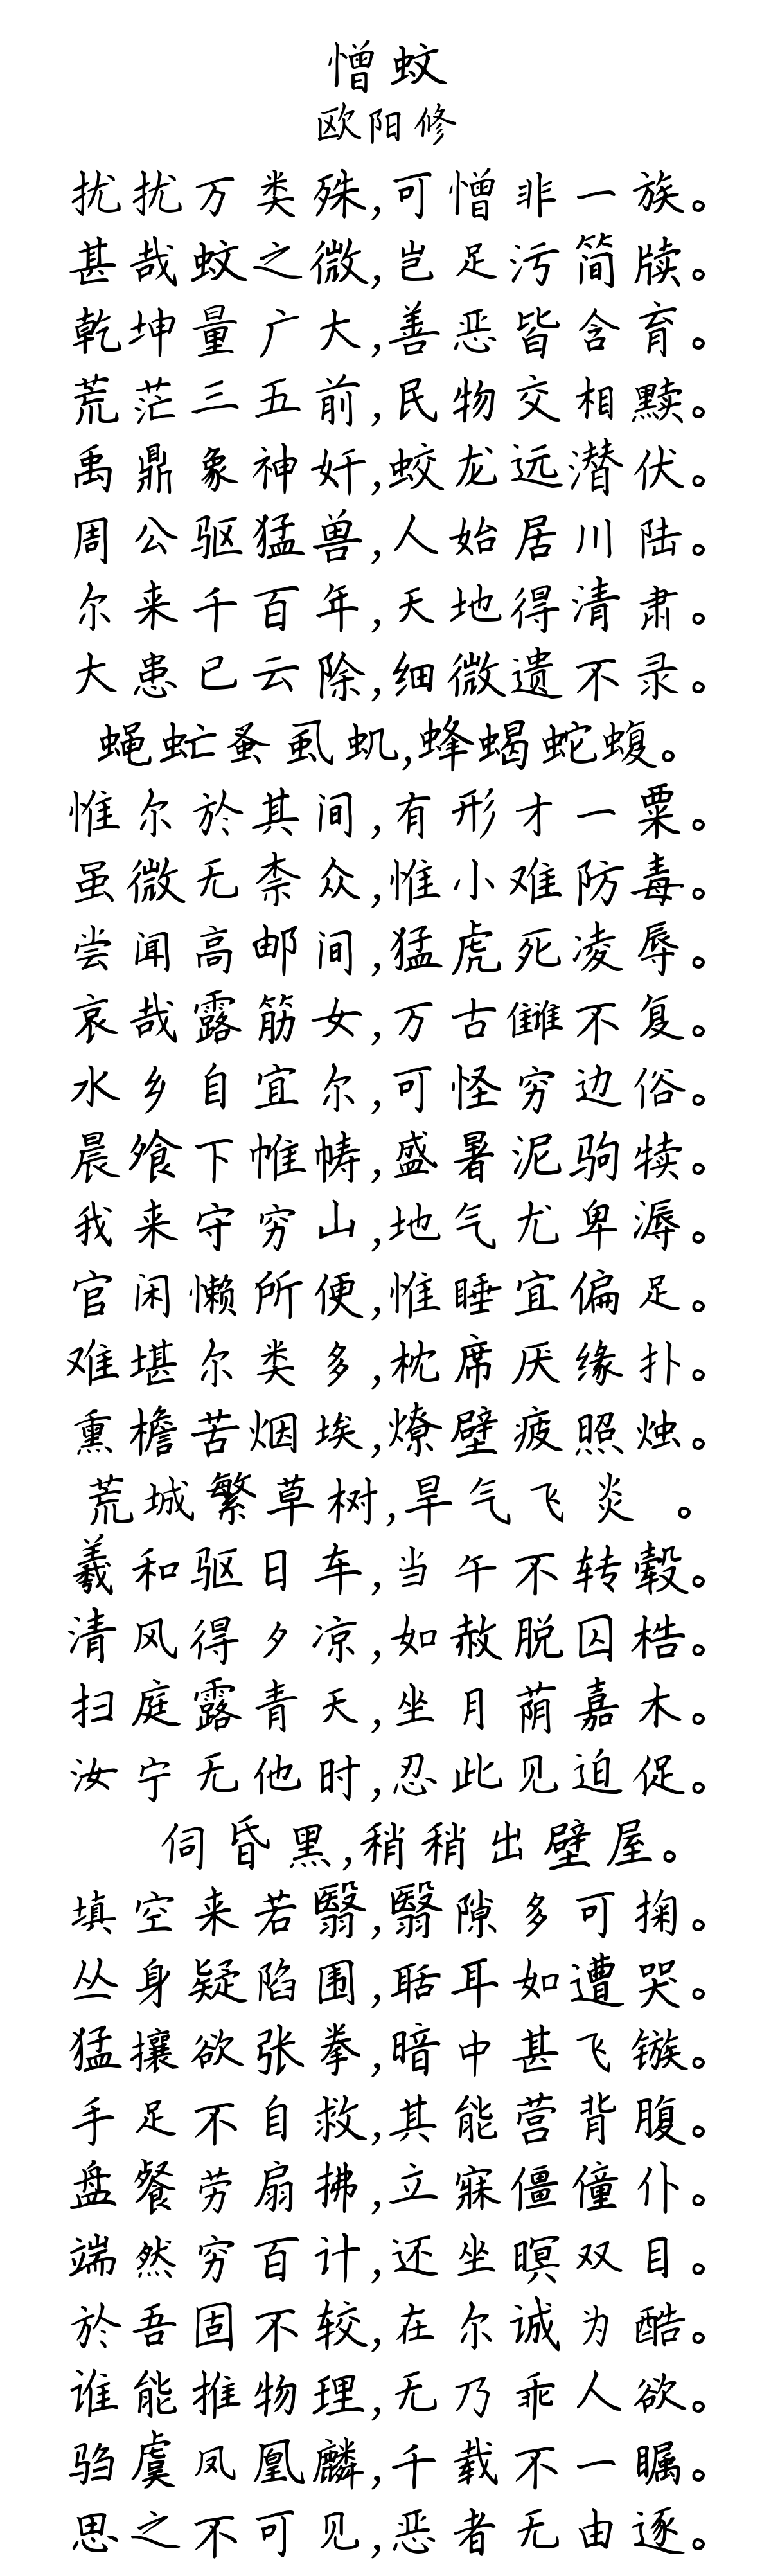 憎蚊
欧阳修
扰扰万类殊,可憎非一族。
甚哉蚊之微,岂足污简牍。
乾坤量广大,善恶皆含育。
荒茫三五前,民物交相黩。
禹鼎象神奸,蛟龙远潜伏。
周公驱猛兽,人始居川陆。
尔来千百年,天地得清肃。
大患已云除,细微遗不录。
蝇虻蚤虱虮,蜂蝎蛇蝮。
惟尔於其间,有形才一粟。
虽微无柰众,惟小难防毒。
尝闻高邮间,猛虎死凌辱。
哀哉露筋女,万古雠不复。
水乡自宜尔,可怪穷边俗。
晨飧下帷帱,盛暑泥驹犊。
我来守穷山,地气尤卑溽。
官闲懒所便,惟睡宜偏足。
难堪尔类多,枕席厌缘扑。
熏檐苦烟埃,燎壁疲照烛。
荒城繁草树,旱气飞炎 。
羲和驱日车,当午不转毂。
清风得夕凉,如赦脱囚梏。
扫庭露青天,坐月荫嘉木。
汝宁无他时,忍此见迫促。
伺昏黑,稍稍出壁屋。
填空来若翳,翳隙多可掬。
丛身疑陷围,聒耳如遭哭。
猛攘欲张拳,暗中甚飞镞。
手足不自救,其能营背腹。
盘餐劳扇拂,立寐僵僮仆。
端然穷百计,还坐暝双目。
於吾固不较,在尔诚为酷。
谁能推物理,无乃乖人欲。
驺虞凤凰麟,千载不一瞩。
思之不可见,恶者无由逐。